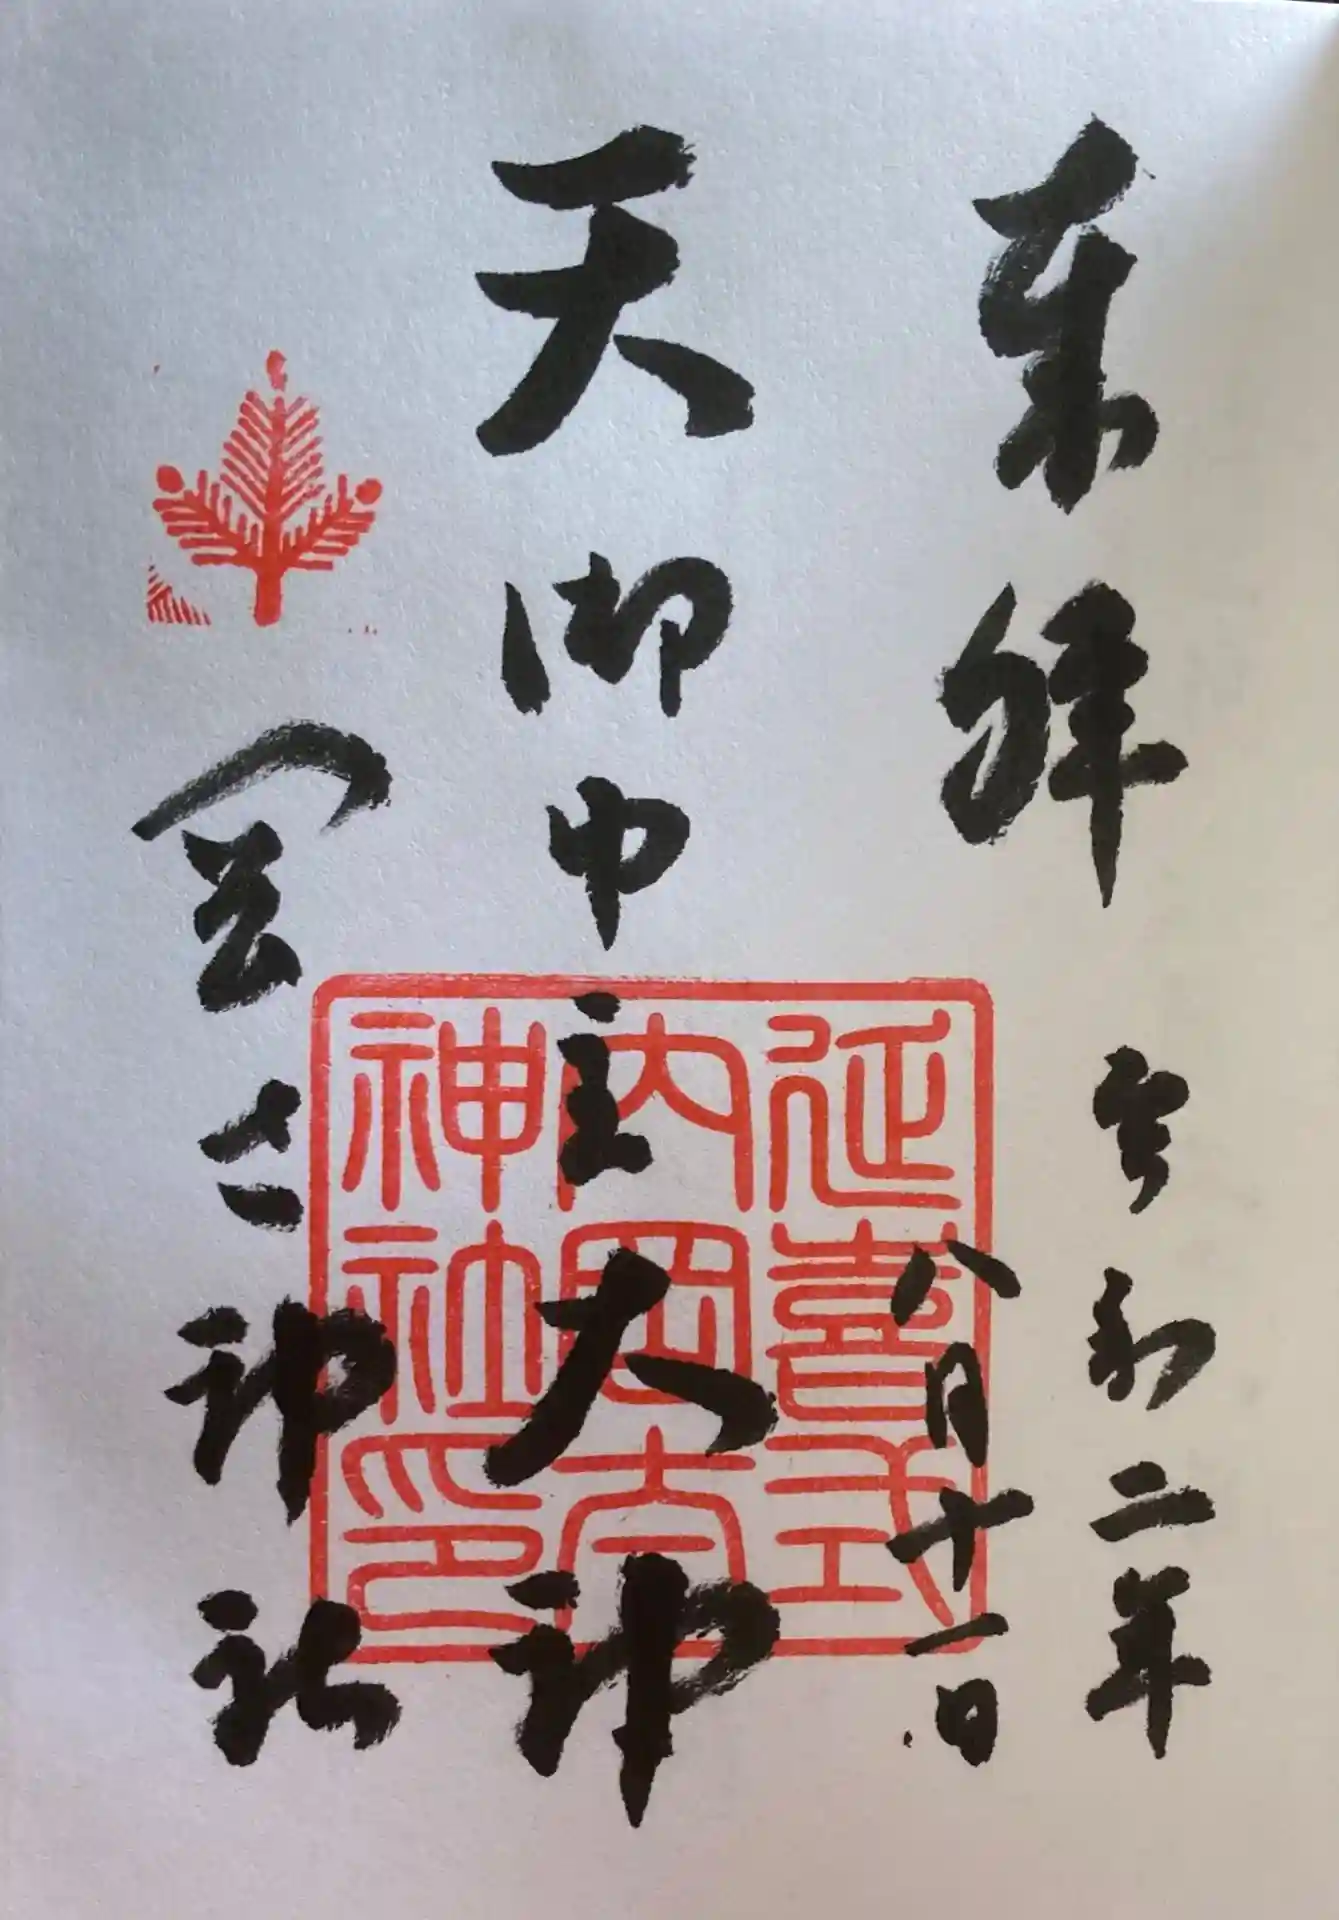 来拝
令和二年
八月十一日
天御中主大神
岡太神社
延喜式
内岡太
神社印